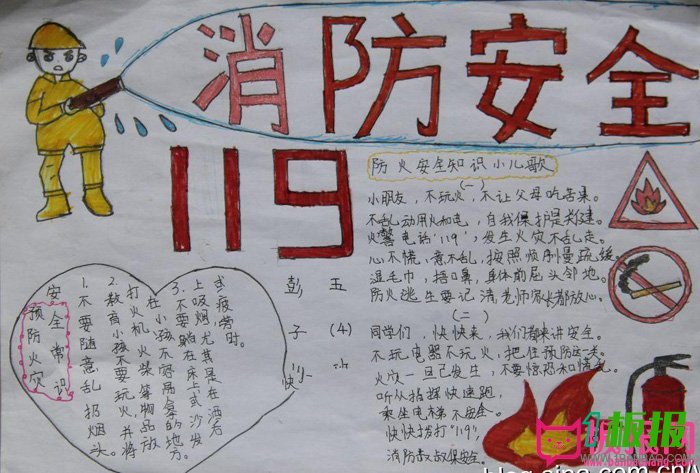 消防安全
119
防火安全知识小儿歌
(一)
小朋友，不玩火，不让父母吃苦果。
不乱动用火和电，自我保护是关键。
火警电话"119"，发生火灾不乱走。
心不慌，意不乱，按照顺序慢疏缓。
湿毛巾，捂口鼻，身体前屈头邻地。
防火逃生要记清，老师家长都放心。
(二)
同学们，快快来，我们都来讲安全。
不玩电器不玩火，把住预防第一关。
火灾一旦已发生，不要惊恐和慌乱。
听从指挥快速跑，
乘坐电梯不安全。
快快拨打"119"，
消防叔叔保安全。
安全常识
预防火灾
1. 不要随意乱扔烟头。
2. 教育小孩不要玩火，并将
打火机火柴等物品放
在小孩不容易拿的地方。
3. 不要躺在床上或沙发
上吸烟，尤其是在酒后
或疲劳时。
五(4)
彭子
板报